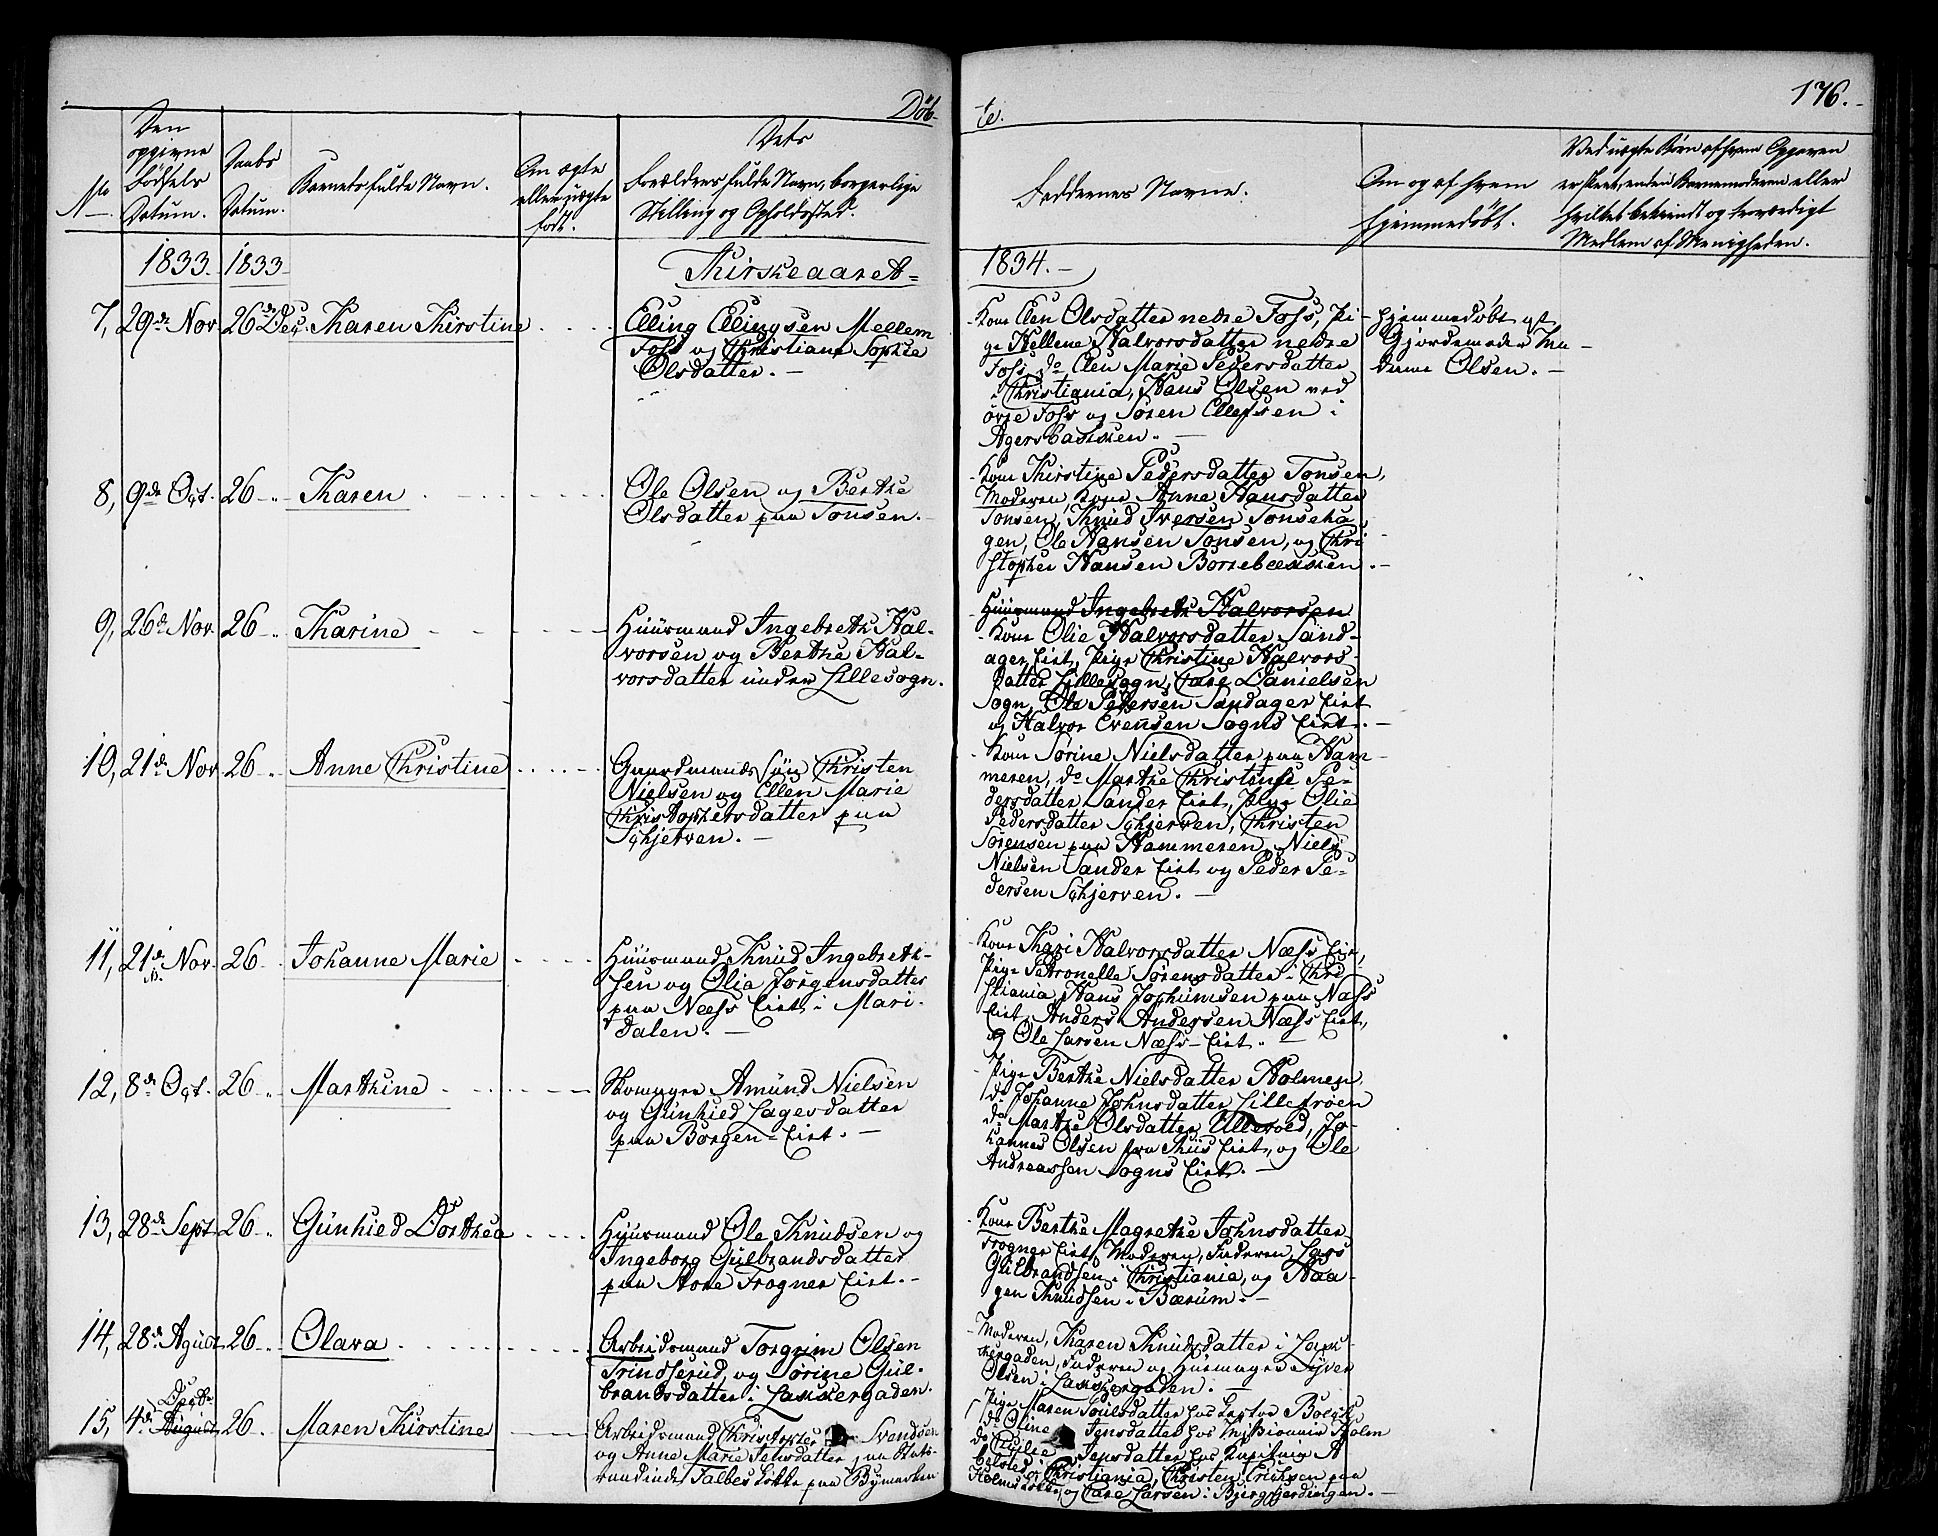 Döb-
te.
176.
No
Den
opgivne
Födsels
Datum.
Daabs
Datum.
Barnets fulde Navn.
Om ægte
eller uægte
født.
Dets
Forældres fulde Navn, borgerlige
Stilling og Opholdssted.
Faddernes Navne.
Om og af hvem
hjemmedöbt.
Ved uægte Börn af hvem Opgaven
er skeet, enten Barnemoderen eller
hvilket bekiendt og troværdigt
Medlem af Menigheden.
1833.
1833
Kirkeaaret
1834.
7, 29de Nov 26de Dec. Karen Kirstine
Elling Ellingsen Mellem
Foss og Christiane Sophie
Olsdatter.
Kone Elen Olsdatter nedre Foss, Pi-
ge Hellene Halvorsdatter nedre
Foss, do Elen Marie Pedersdatter
i Christiania, Hans Olsen ved
övre Foss og Sören Ellefsen i
Agersbakken.
hjemmedöbt af
Gjordemoder Ma-
dame Olsen.
8, 9de Oct. 26 Karen
Ole Olsen og Berthe
Olsdatter paa Tonsen.
Kone Kirstine Pedersdatter Tonsen,
Moderen, Kone Anne Hansdatter
Tonsen, Knud Iversen Tonseha-
gen, Ole Hansen Tonsen, og Chri-
stopher Hansen Borrebækken.
9, 26de Nov. 26 Karine
Huusmand Ingebreth Hal-
vorsen og Berthe Hal-
vorsdatter under Lillesogn.
Huusmand Ingebreth Halvorsen
Kone Olie Halvorsdatter Sand-
ager Eiet, Pige Christine Halvors-
datter Lillesogn, Tare Danielsen
Sogn, Ole Pedersen Sandager Eiet
og Halvor Evensen Sogns Eiet.
10, 21de Nov 26 Anne Christine
Gaardmands Sön Christen
Nielsen og Ellen Marie
Christophersdatter paa
Schjerven.
Kone Sörine Nielsdatter paa Ham-
meren, do Marthe Christense Pe-
dersdatter Sander Eiet, Pige Olie
Pedersdatter Schjerven, Christen
Sörensen paa Hammeren, Niels
Nielsen Sander Eiet og Peder Pe-
dersen Schjerven.
11, 21de Nov. 26 Johanne Marie
Huusmand Knud Ingebreth-
sen og Olia Jörgensdatter
paa Næss Eiet i Mari-
dalen.
Kone Kari Halvorsdatter Næss Eiet,
Pige Petronelle Sörensdatter i Chri-
stiania, Hans Jochumsen paa Næss
Eiet, Anders Andersen Næss Eiet,
og Ole Larsen Næss-Eiet.
12, 8de Oct. 26 Marthine
Skomager Amund Nielsen
og Gunhied Lagesdatter
paa Borgen-Eiet.
Pige Berthe Nielsdatter Holmen,
do Johanne Johnsdatter Lillefröen
do Marthe Olsdatter Ullevold, Jo-
hannes Olsen fra Huus Eiet, og Ole
Andreassen Sogns Eiet.
13, 28de Sept. 26 Gunhied Dorthea
Huusmand Ole Knudsen og
Ingeborg Gulbrandsdatter
paa Store Frogner Eiet.
Kone Berthe Magrethe Johnsdatter
Frogner Eiet, Moderen, Faderen, Lars
Gulbrandsen i Christiania, og Haa-
gen Knudsen i Bærum.
14, 28de Agust 26 Olava
Arbeidsmand Torgrim Olsen
Trindserud, og Sörine Gul-
brandsdatter i Lakkergaden.
Moderen, Karen Knudsdatter i Lak-
kergaden, Faderen og Huusmager Syver
Olsen i Lakkergaden.
15, 4de August Octbr 26 Maren Kirstine
Arbeidsmand Christopher Svendsen
og Anne Marie Jensdatter paa
Falbes Lökke paa Bymarken
Pige Maren Poulsdatter hos Lector
do Oline Jensdatter hos Missionair Holm
do Jensdatter hos Kapitain A
i Christiania, Christen Erichsen paa
og Tare Larsen i Bjergfjerdingen.